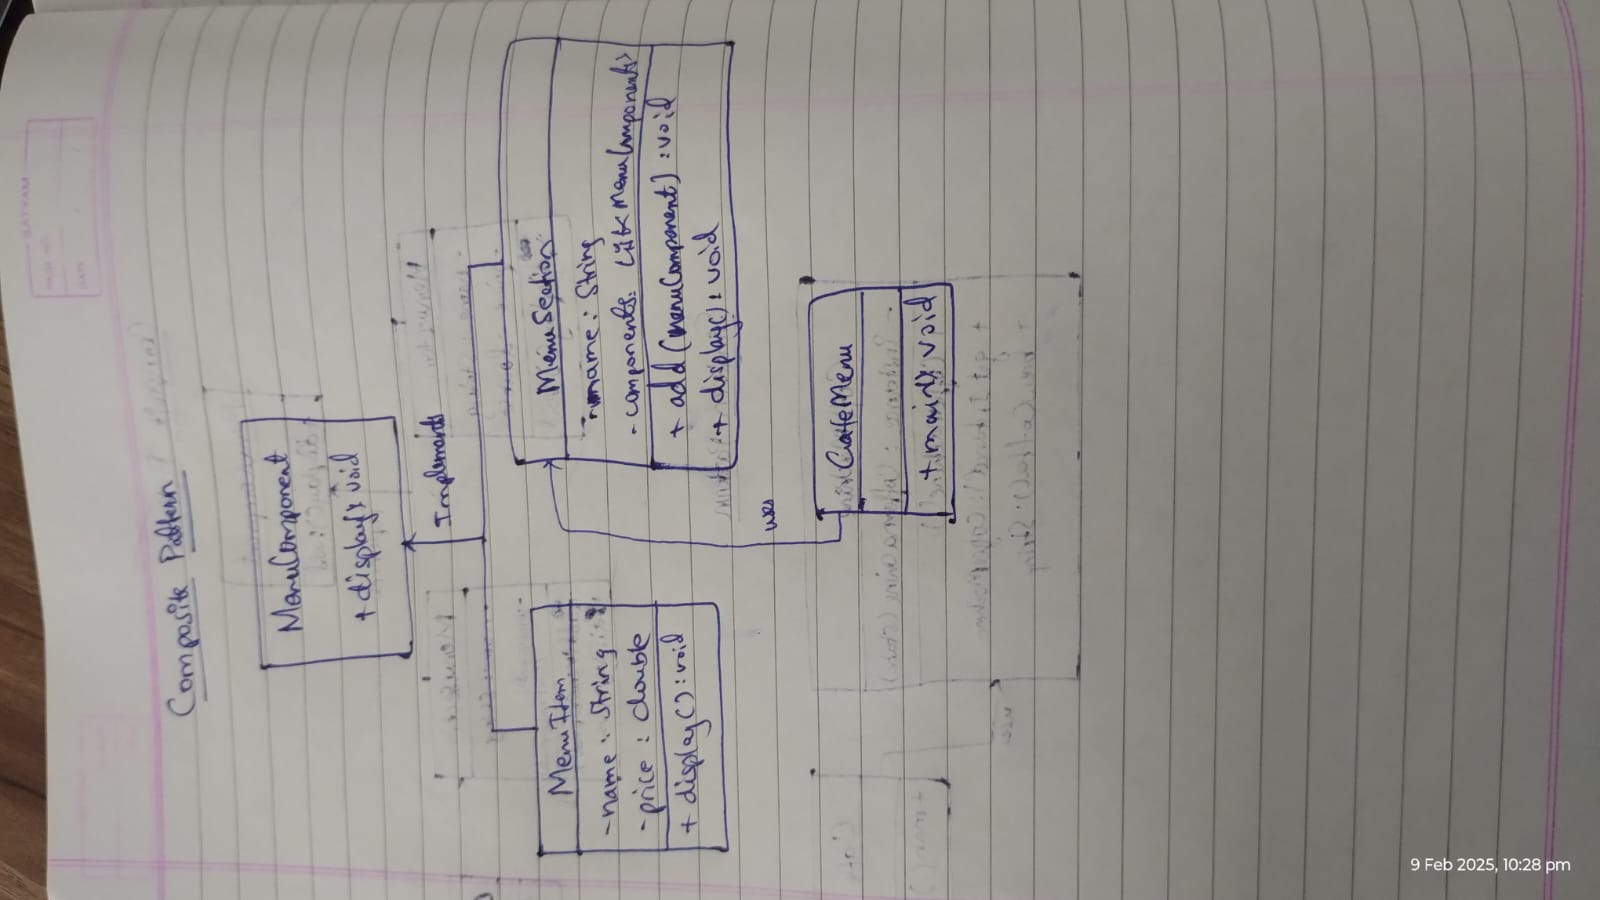 Composite Pattern
MenuComponent
+ display(): void
Implements
MenuItem
- name : String
- price : double
+ display() : void
MenuSection
- name : String
- components: List<MenuComponent>
+ add(menuComponent) : void
+ display() : void
uses
CaffeMenu
+ main(): void
9 Feb 2025, 10:28 pm